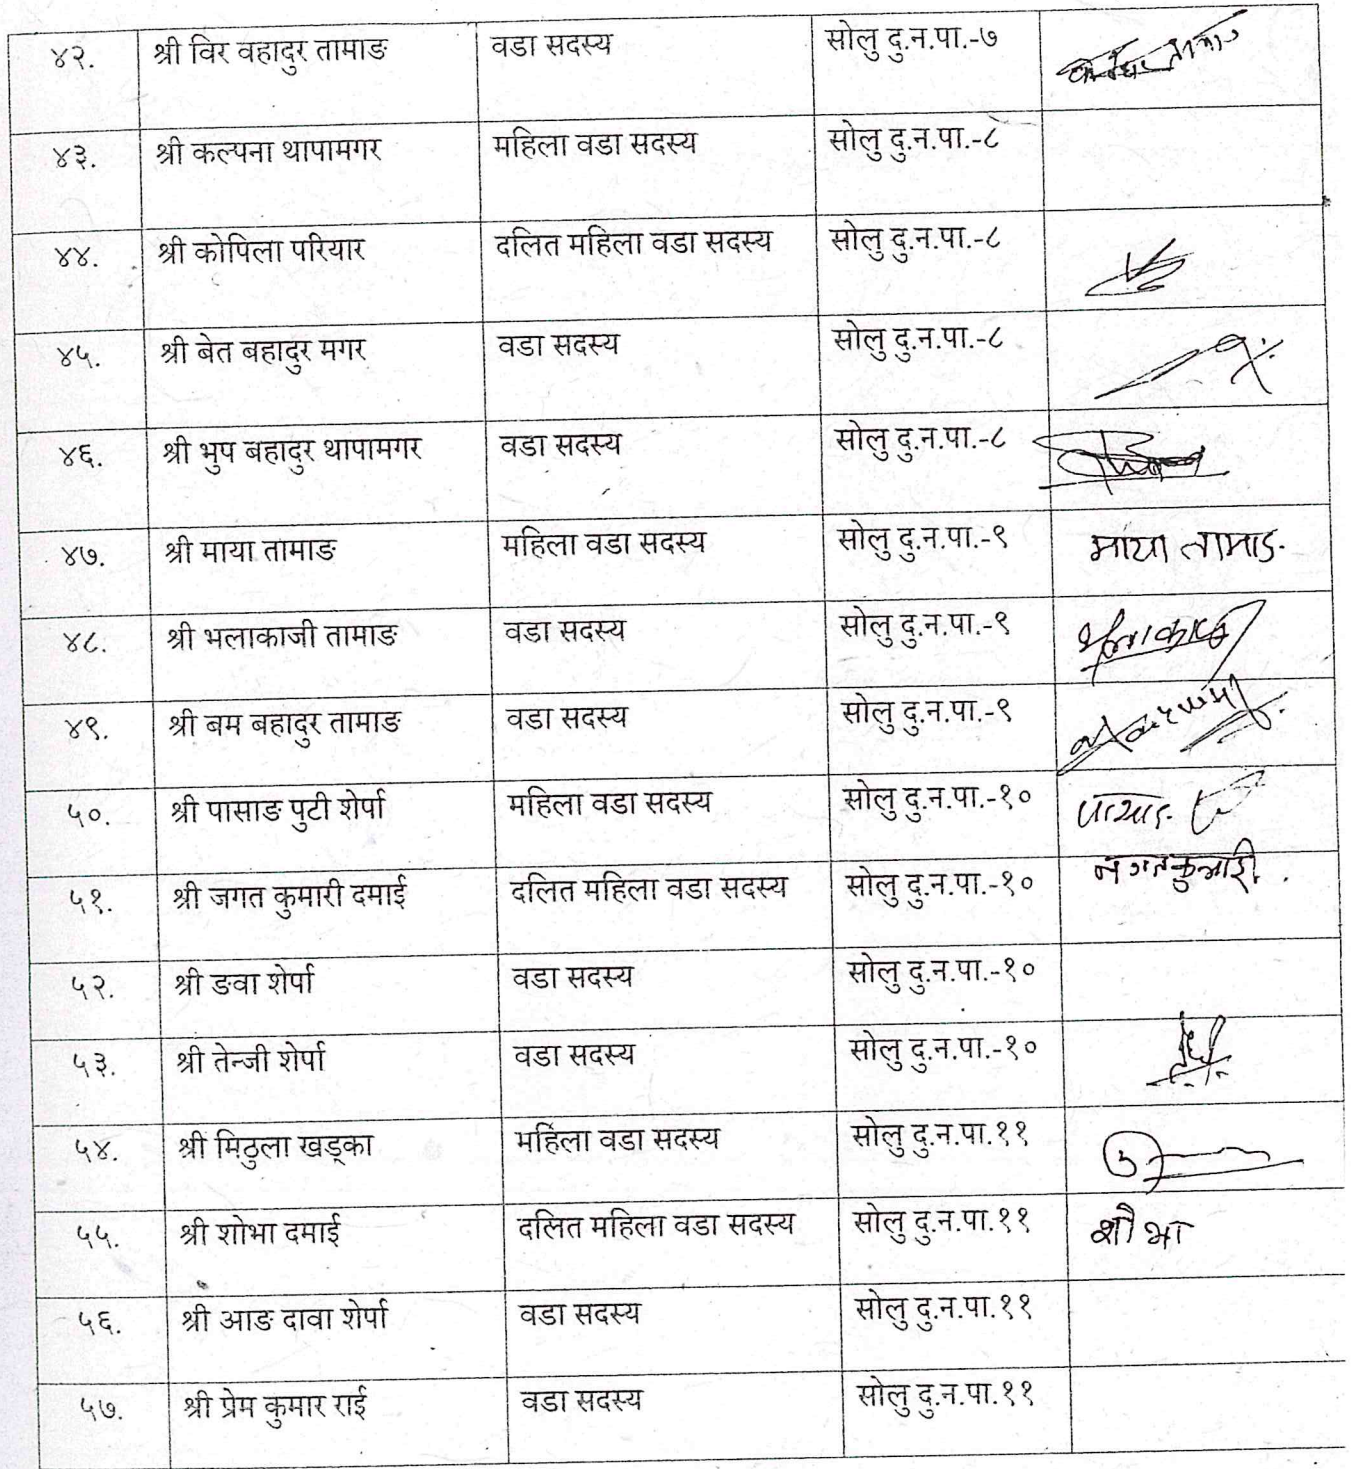 ४२. श्री विर वहादुर तामाङ वडा सदस्य सोलु दु.न.पा.-७
४३. श्री कल्पना थापामगर महिला वडा सदस्य सोलु दु.न.पा.-८
४४. श्री कोपिला परियार दलित महिला वडा सदस्य सोलु दु.न.पा.-८
४५. श्री बेत बहादुर मगर वडा सदस्य सोलु दु.न.पा.-८
४६. श्री भुप बहादुर थापामगर वडा सदस्य सोलु दु.न.पा.-८
४७. श्री माया तामाङ महिला वडा सदस्य सोलु दु.न.पा.-९ माया तामाङ
४८. श्री भलाकाजी तामाङ वडा सदस्य सोलु दु.न.पा.-९
४९. श्री बम बहादुर तामाङ वडा सदस्य सोलु दु.न.पा.-९
५०. श्री पासाङ पुटी शेर्पा महिला वडा सदस्य सोलु दु.न.पा.-१० पासाङ
५१. श्री जगत कुमारी दमाई दलित महिला वडा सदस्य सोलु दु.न.पा.-१० जगत कुमारी
५२. श्री ङवा शेर्पा वडा सदस्य सोलु दु.न.पा.-१०
५३. श्री तेन्जी शेर्पा वडा सदस्य सोलु दु.न.पा.-१०
५४. श्री मिठुला खड्का महिला वडा सदस्य सोलु दु.न.पा.११
५५. श्री शोभा दमाई दलित महिला वडा सदस्य सोलु दु.न.पा.११ शौभा
५६. श्री आङ दावा शेर्पा वडा सदस्य सोलु दु.न.पा.११
५७. श्री प्रेम कुमार राई वडा सदस्य सोलु दु.न.पा.११